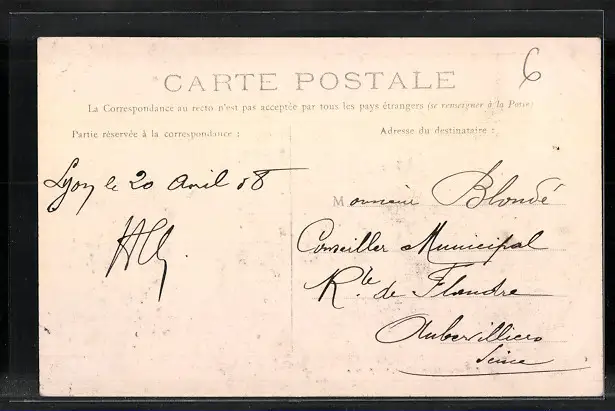 6
CARTE POSTALE
La Correspondance au recto n'est pas acceptée par tous les pays étrangers (se renseigner à la Poste)
Partie réservée à la correspondance :
Adresse du destinataire :
Lyon le 20 Avril 08
Monsieur Blondé
Conseiller Municipal
Rte de Flandre
Aubervilliers
Seine